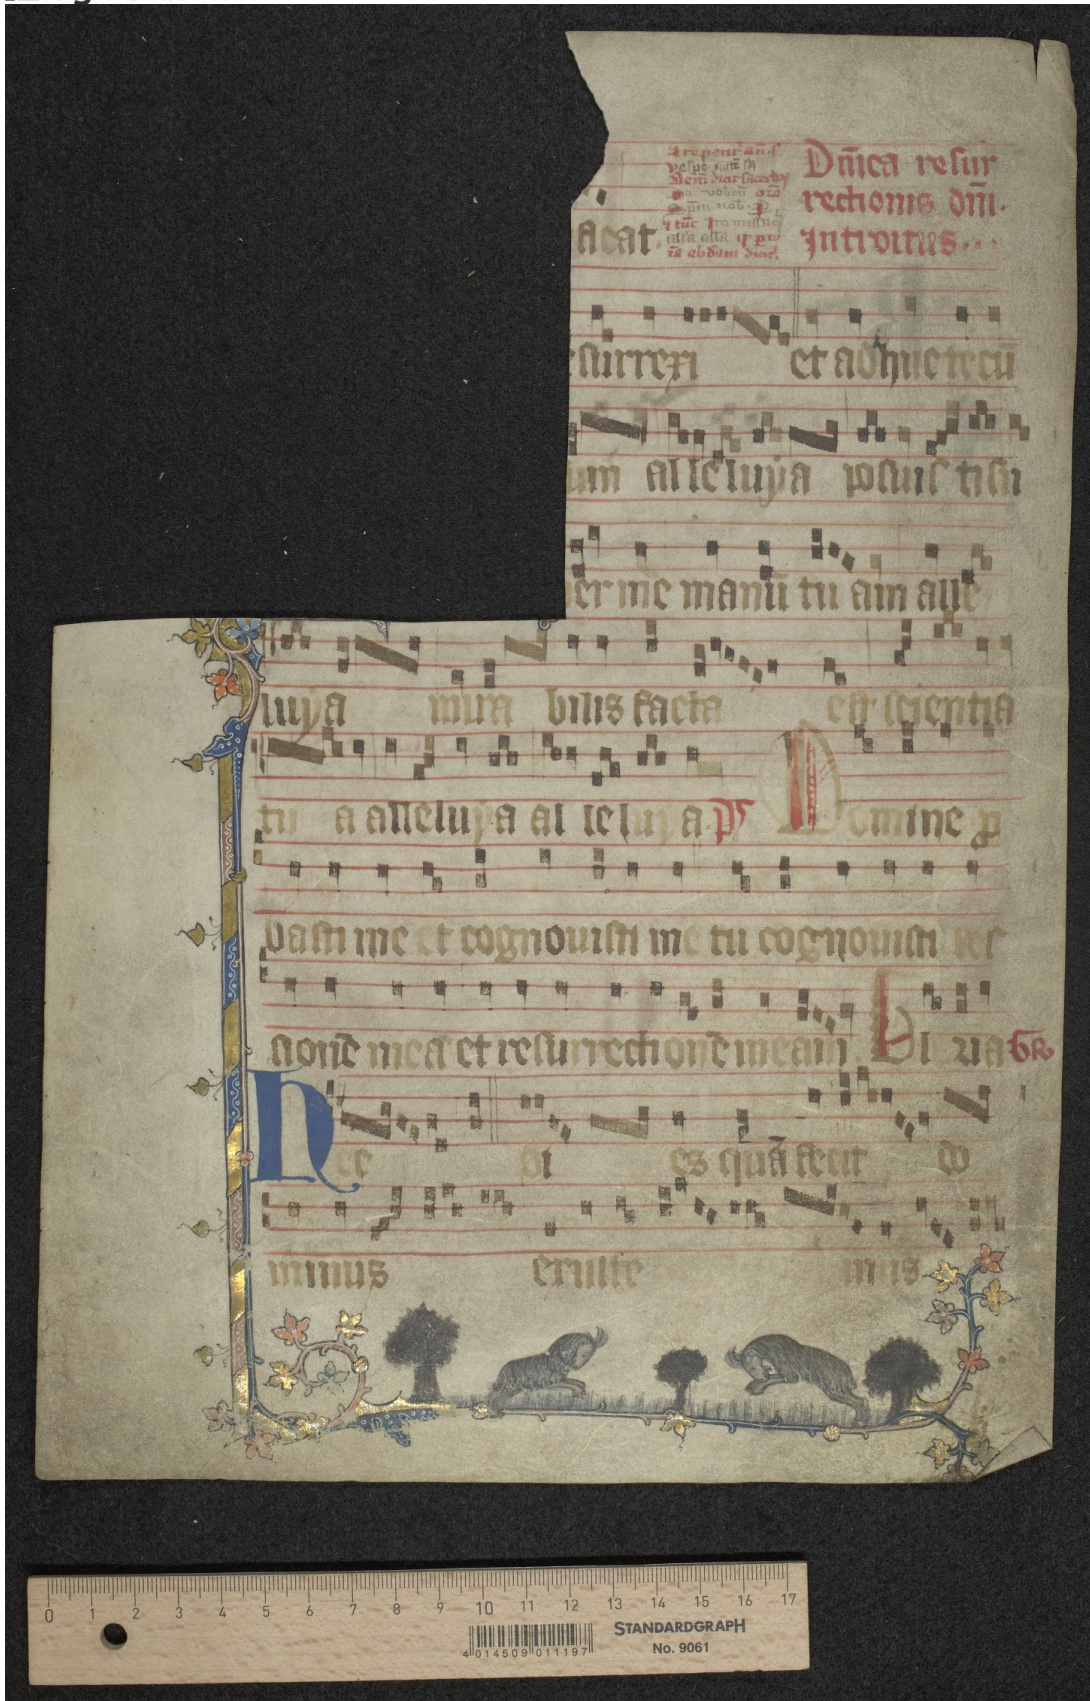 Dn̄ica resur
rectionis dn̄i.
Introitus...
acat.
surrexi et adhuc tecū
um alleluya posuisti su
per me manū tu am alle
luya mira bilis facta est scientia
tu a alleluya al leluya ps Domine p
basti me et cognouisti me tu cognouisti ses
sionē meā et resurrectionē meam. Gloria
Hec di es quā fecit do
minus exulte mus
0 1 2 3 4 5 6 7 8 9 10 11 12 13 14 15 16 17
STANDARDGRAPH
No. 9061
4 014509 011197